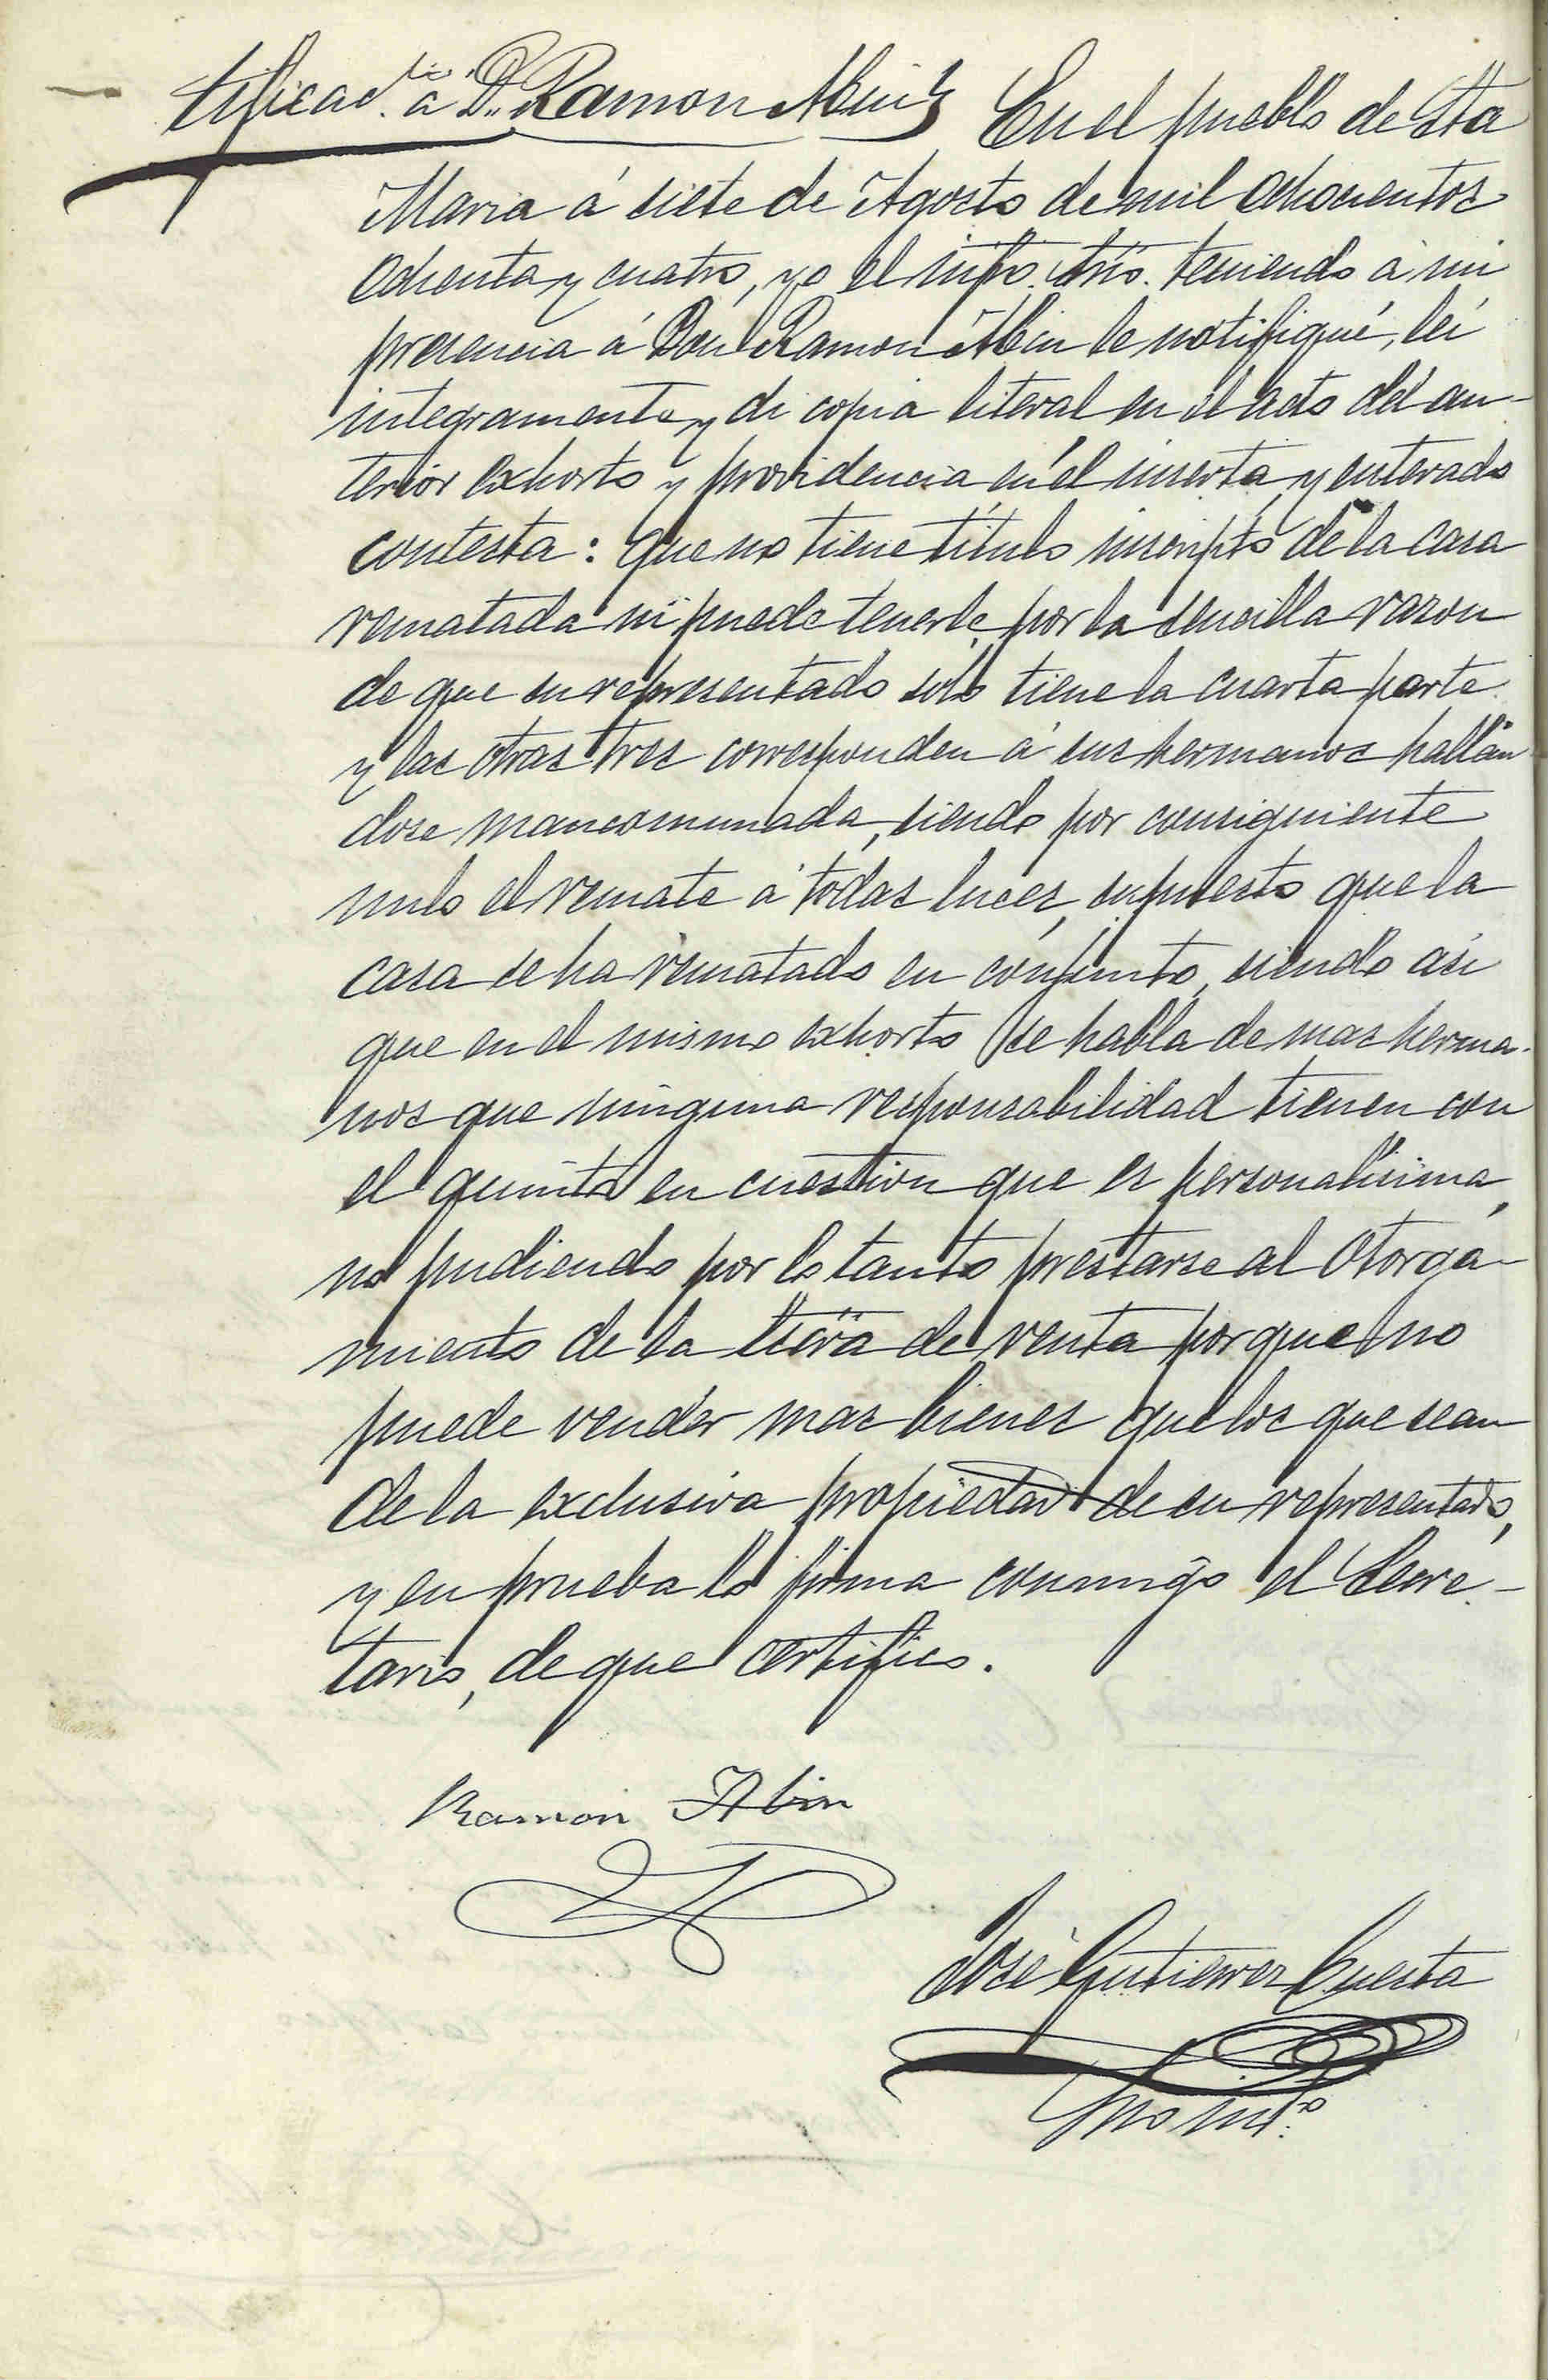 tificac.ᵗⁱᵒ a D.ⁿ Ramon Abin } En el pueblo de Sta
Maria á siete de Agosto de mil ochocientos
ochenta y cuatro, yo el infro. Srio. teniendo á mi
presencia á Don Ramon Abin le notifiqué, leí
integramente y di copia literal en el acto del an-
terior exhorto y providencia en él inserta, y enterado
contesta: que no tiene título inscripto de la casa
rematada ni puede tenerle, por la sencilla razon
de que su representado solo tiene la cuarta parte
y las otras tres corresponden á sus hermanos hallán
dose mancomunada, siendo por consiguiente
nulo el remate á todas luces, supuesto que la
casa se ha rematado en conjunto, siendo asi
que en el mismo exhorto se habla de mas herma-
nos que ninguna responsabilidad tienen con
el quinto en cuestion que es personalisima,
no pudiendo por lo tanto prestarse al otorga-
miento de la escra de venta porque no
puede vender mas bienes que los que sean
de la exclusiva propiedad de su representado,
y en prueba lo firma conmigo el Secre-
tario, de que certifico.
Ramon Abin
José Gutierrez Cuesta
Srio int.º